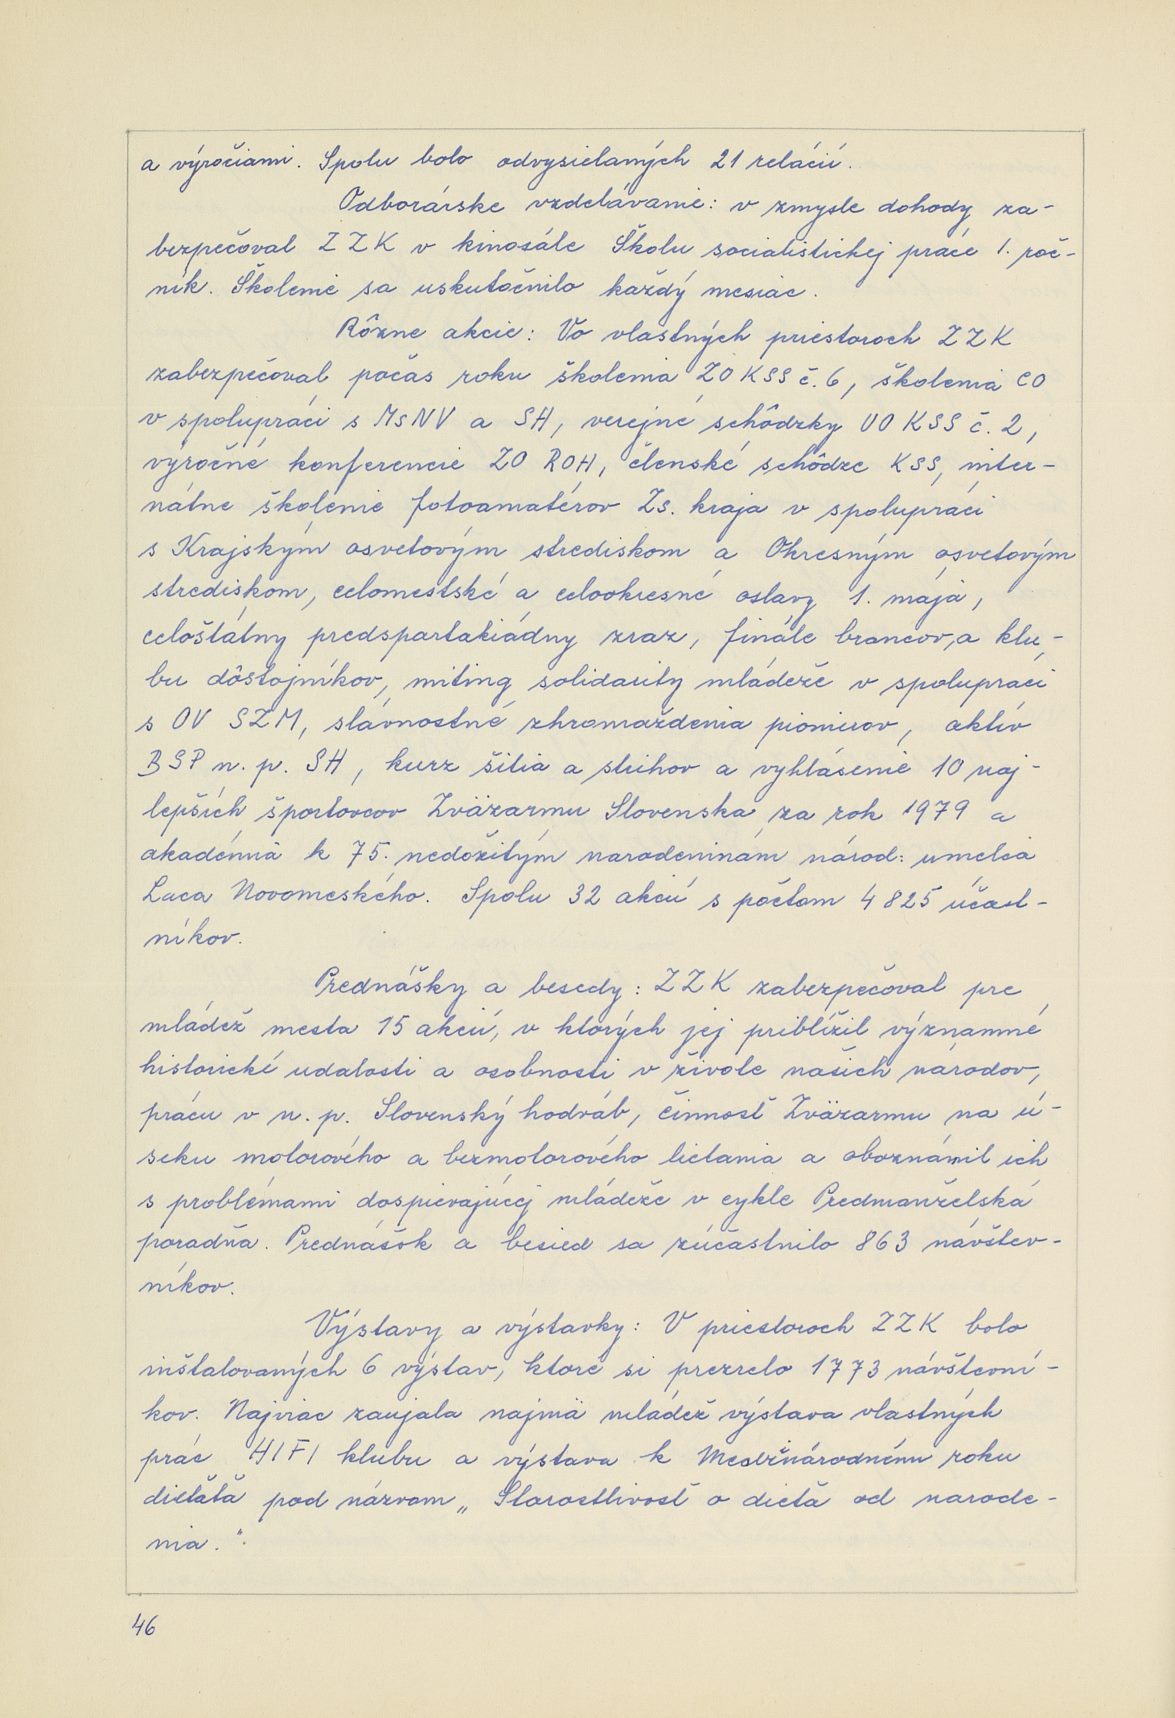 a výročiami. Spolu bolo odvysielaných 21 relácií.
Odborárske vzdelávanie: v zmysle dohody za-
bezpečoval ZZK v kinosále Školu socialistickej práce 1. roč-
ník. Školenie sa uskutočnilo každý mesiac.
Rôzne akcie: Vo vlastných priestoroch ZZK
zabezpečoval počas roku školenia ZO KSS č. 6, školenia CO
v spolupráci s MsNV a SH, verejné schôdzky UO KSS č. 2,
výročné konferencie ZO ROH, členské schôdze KSS, inter-
nátne školenie fotoamatérov Zs. kraja v spolupráci
s Krajským osvetovým strediskom a Okresným osvetovým
strediskom, celomestské a celookresné oslavy 1. mája,
celoštátny predspartakiádny zraz, finále brancov, a klu-
bu dôstojníkov, míting solidarity mládeže v spolupráci
s OV SZM, slávnostné zhromaždenia pionierov, aktív
BSP n. p. SH, kurz šitia a strihov a vyhlásenie 10 naj-
lepších športovcov Zväzarmu Slovenska za rok 1979 a
akadémia k 75. nedožitým narodeninám národ. umelca
Laca Novomeského. Spolu 32 akcií s počtom 4 825 účast-
níkov.
Prednášky a besedy: ZZK zabezpečoval pre
mládež mesta 15 akcií, v ktorých jej priblížil významné
historické udalosti a osobnosti v živote našich národov,
prácu v n. p. Slovenský hodváb, činnosť Zväzarmu na ú-
seku motorového a bezmotorového lietania a oboznámil ich
s problémami dospievajúcej mládeže v cykle Predmanželská
poradňa. Prednášok a besied sa zúčastnilo 863 návštev-
níkov.
Výstavy a výstavky: V priestoroch ZZK bolo
inštalovaných 6 výstav, ktoré si prezrelo 1773 návštevní-
kov. Najviac zaujala najmä mládež výstava vlastných
prác HIFI klubu a výstava k Medzinárodnému roku
dieťaťa pod názvom „Starostlivosť o dieťa od narode-
nia."
46